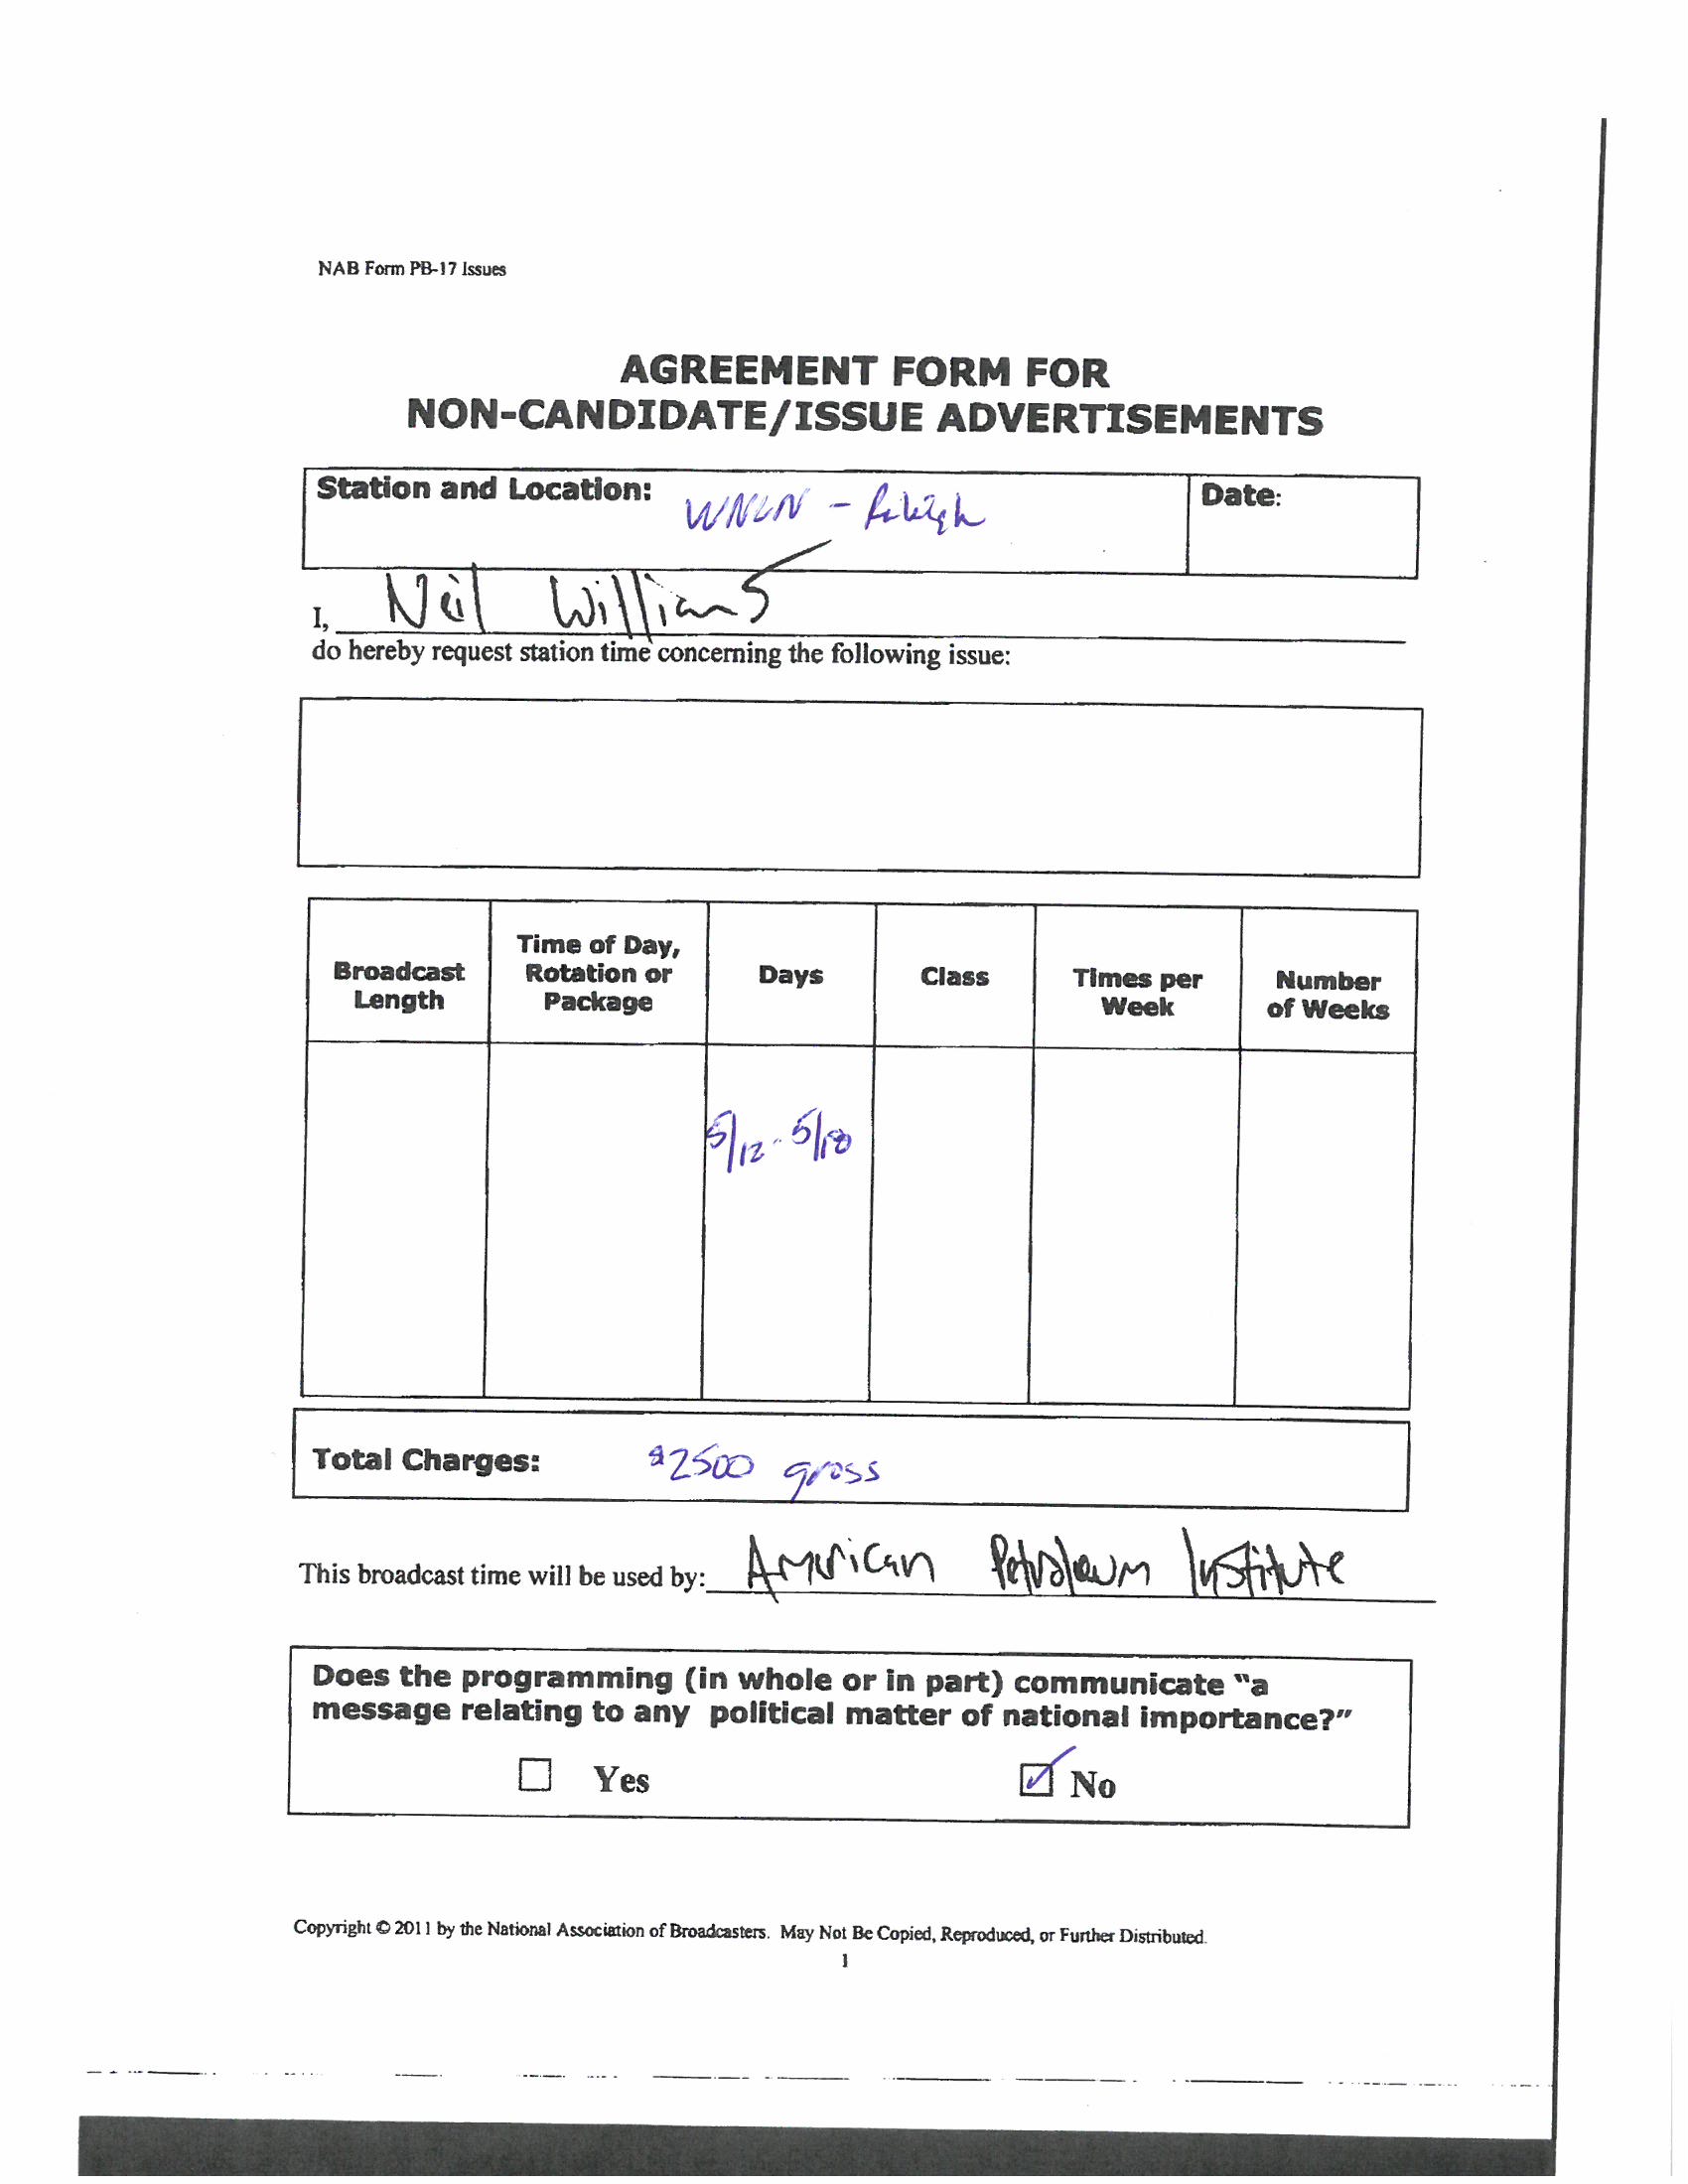 NAB Form PB-17 Issues
AGREEMENT FORM FOR
NON-CANDIDATE/ISSUE ADVERTISEMENTS
Station and Location: WNCN - Raleigh
Date:
I, Neil Williams
do hereby request station time concerning the following issue:
Broadcast Length
Time of Day, Rotation or Package
Days
Class
Times per Week
Number of Weeks
5/12 - 5/18
Total Charges: $2500 gross
This broadcast time will be used by: American Petroleum Institute
Does the programming (in whole or in part) communicate “a
message relating to any political matter of national importance?”
Yes
No
Copyright © 2011 by the National Association of Broadcasters. May Not Be Copied, Reproduced, or Further Distributed.
1